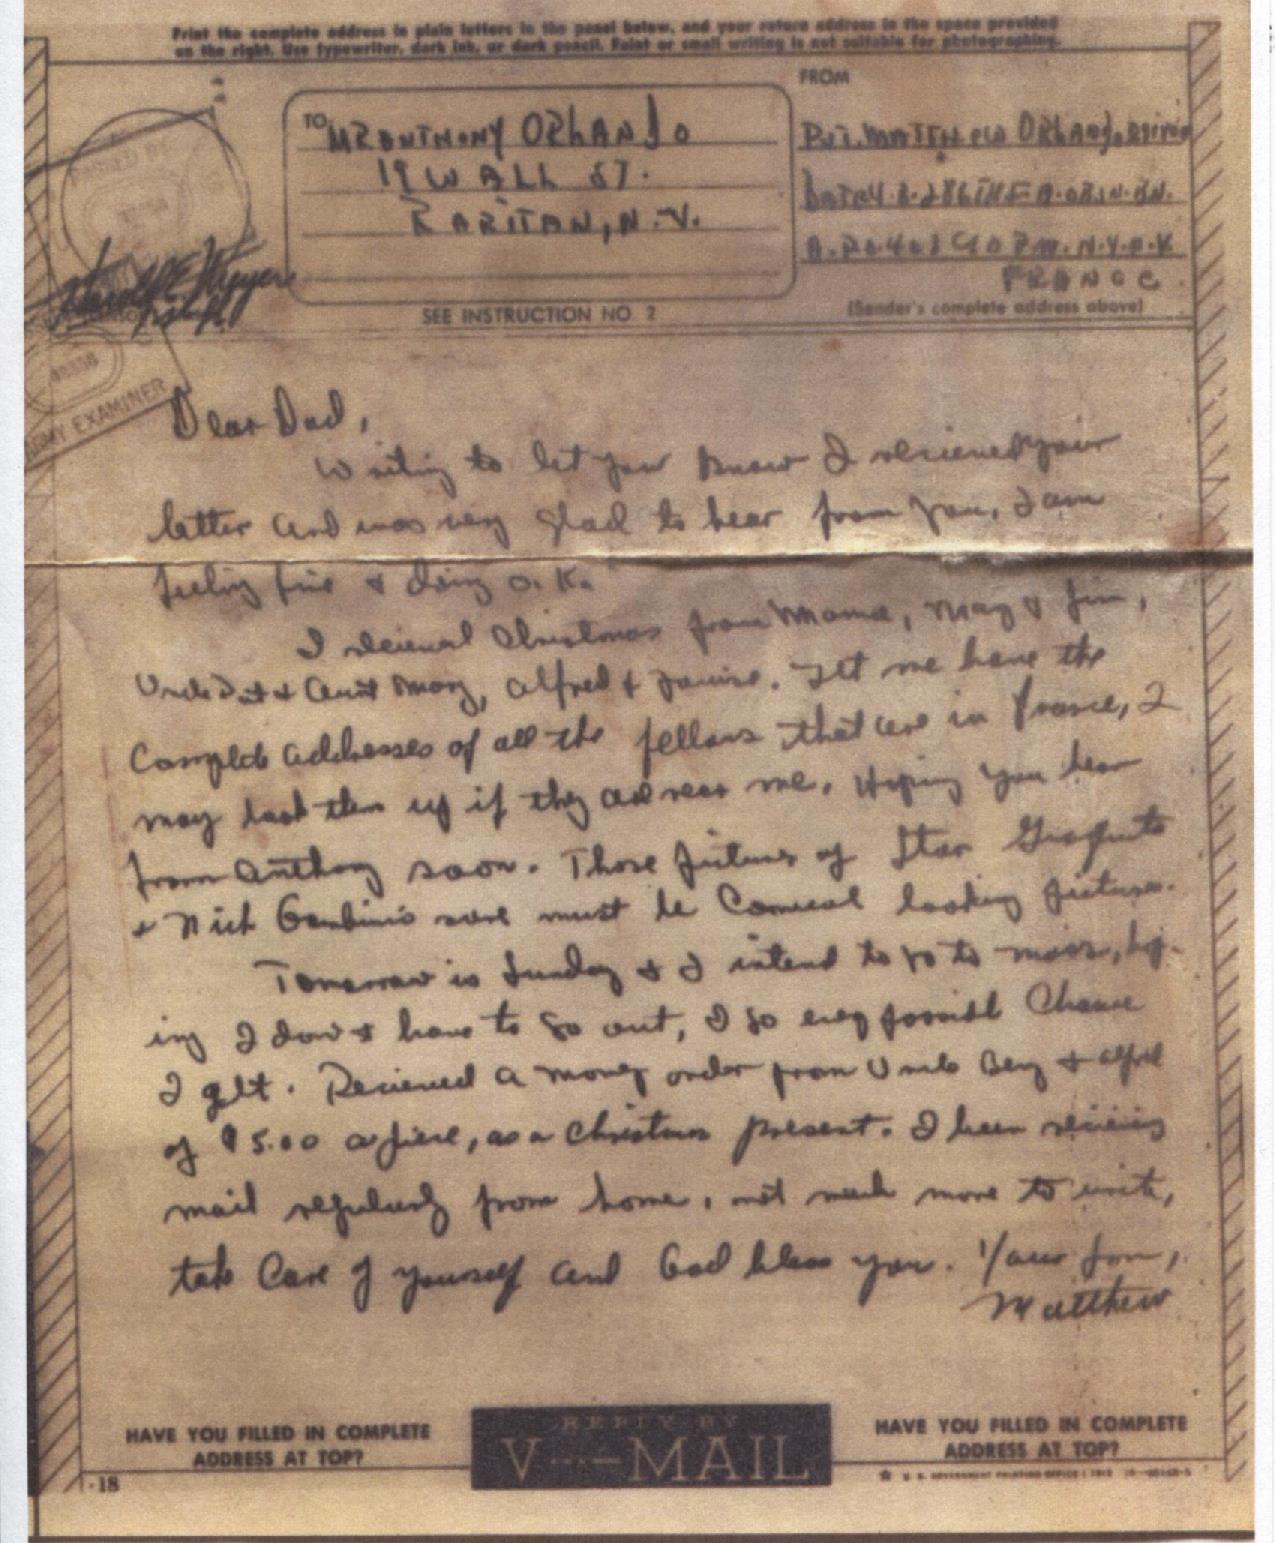 Print the complete address in plain letters in the panel below, and your return address in the space provided
on the right. Use typewriter, dark ink, or dark pencil. Faint or small writing is not suitable for photographing.
FROM
TO
MR ANTHONY ORLANDO
19 WALL ST.
RARITAN, N. J.
PVT. MATTHEW ORLANDO
FRANCE
(Sender's complete address above)
SEE INSTRUCTION NO. 2
ARMY EXAMINER
Dear Dad,
Writing to let you know I recieved your
letter and was very glad to hear from you, I am
feeling fine & doing O.K.
I recieved Christmas from Mama, May & Jim,
Uncle & Aunt Mary, Alfred & . Let me have the
complete addresses of all the fellows that are in France, I
may look them up if they are near me. Hoping you hear
from Anthony soon. Those pictures of Stan
& Nick sure must be comical looking pictures.
Tomorrow is Sunday & I intend to go to mass, hop-
ing I don't have to go out, I go every possible chance
I get. Recieved a money order from Uncle & Alfred
of $5.00 a piece, as a Christmas present. I been recieving
mail regularly from home, not much more to write,
take care of yourself and God bless you. Your son,
Matthew
HAVE YOU FILLED IN COMPLETE
ADDRESS AT TOP?
REPLY BY
V···—MAIL
HAVE YOU FILLED IN COMPLETE
ADDRESS AT TOP?
U. S. GOVERNMENT PRINTING OFFICE
18